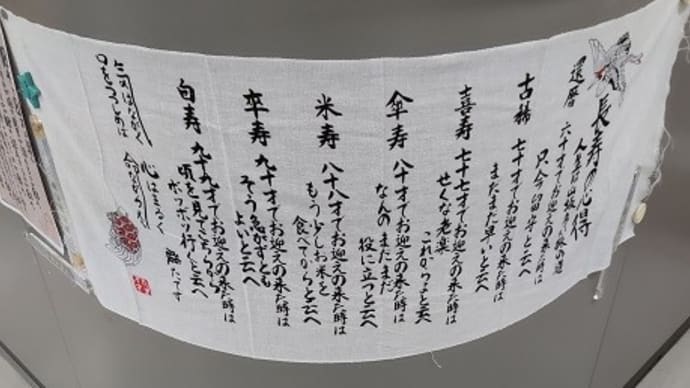 長寿の心得
人生は山坂多い旅の道
還暦 六十才でお迎えの来た時は
只今留守と云へ
古稀 七十才でお迎えの来た時は
まだまだ早いと云へ
喜寿 七十七才でお迎えの来た時は
せくな老楽
これからよと云へ
傘寿 八十才でお迎えの来た時は
なんのまだまだ
役に立つと云へ
米寿 八十八才でお迎えの来た時は
もう少しお米を
食べてからと云へ
卒寿 九十才でお迎えの来た時は
そう急がずとも
よいと云へ
白寿 九十九才でお迎えの来た時は
頃を見てこちらから
ボツボツ行くと云へ
気はながく 心はまるく
口をつつしめば 命ながらえる